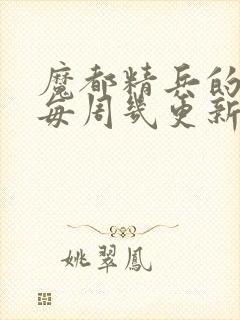 魔都精兵的
每周幾更新
姚翠鳳